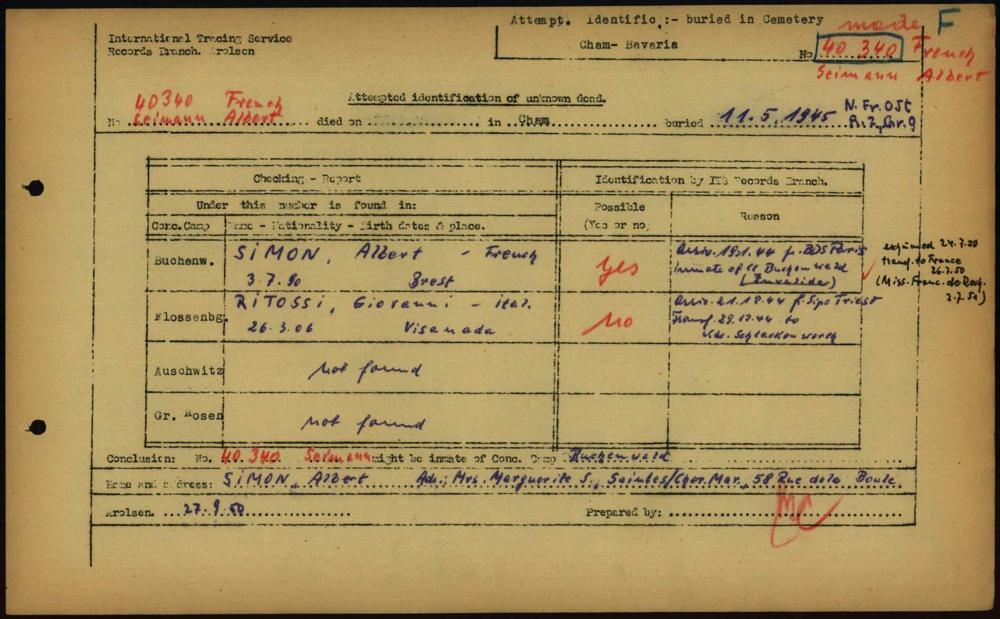 Attempt. Identific.:- buried in Cemetery
made F
International Tracing Service
Records Branch. Arolsen
Cham- Bavaria
No 40 340 French
Seimann Albert
Attempted identification of unknown dead.
40340 French
No Seimann Albert died on in Cham buried 11.5.1945 N.Fr.Ost
R.2, Gr.9
Checking - Report
Identification by ITS Records Branch.
Under this number is found in:
Possible
(Yes or no)
Reason
Conc.Camp
Name - Nationality - Birth dates & place.
Buchenw.
SIMON, Albert - French
3.7.90 Brest
yes
Arriv. 19.1.44 f. BDS Paris
inmate of CC Buchenwald
(Invalide)
exhumed 24.7.50
transf. to France
26.7.50
(Miss. Franc. de Rech.
2.7.51)
Flossenbg.
RITOSSI, Giovanni - ital.
26.3.06 Visanada
No
Arriv. 21.12.44 f. Sipo Triest
Transf. 29.12.44 to
Kdo. Schlackenwerth
Auschwitz
not found
Gr. Rosen
not found
Conclusion: No. 40.340. Seimann might be inmate of Conc. Camp Buchenwald
Name and address: SIMON, Albert Adr.: Mrs. Marguerite S., Saintes/Char.Mar., 58 Rue de la Boule.
Arolsen. 27.9.50
Prepared by:
MC